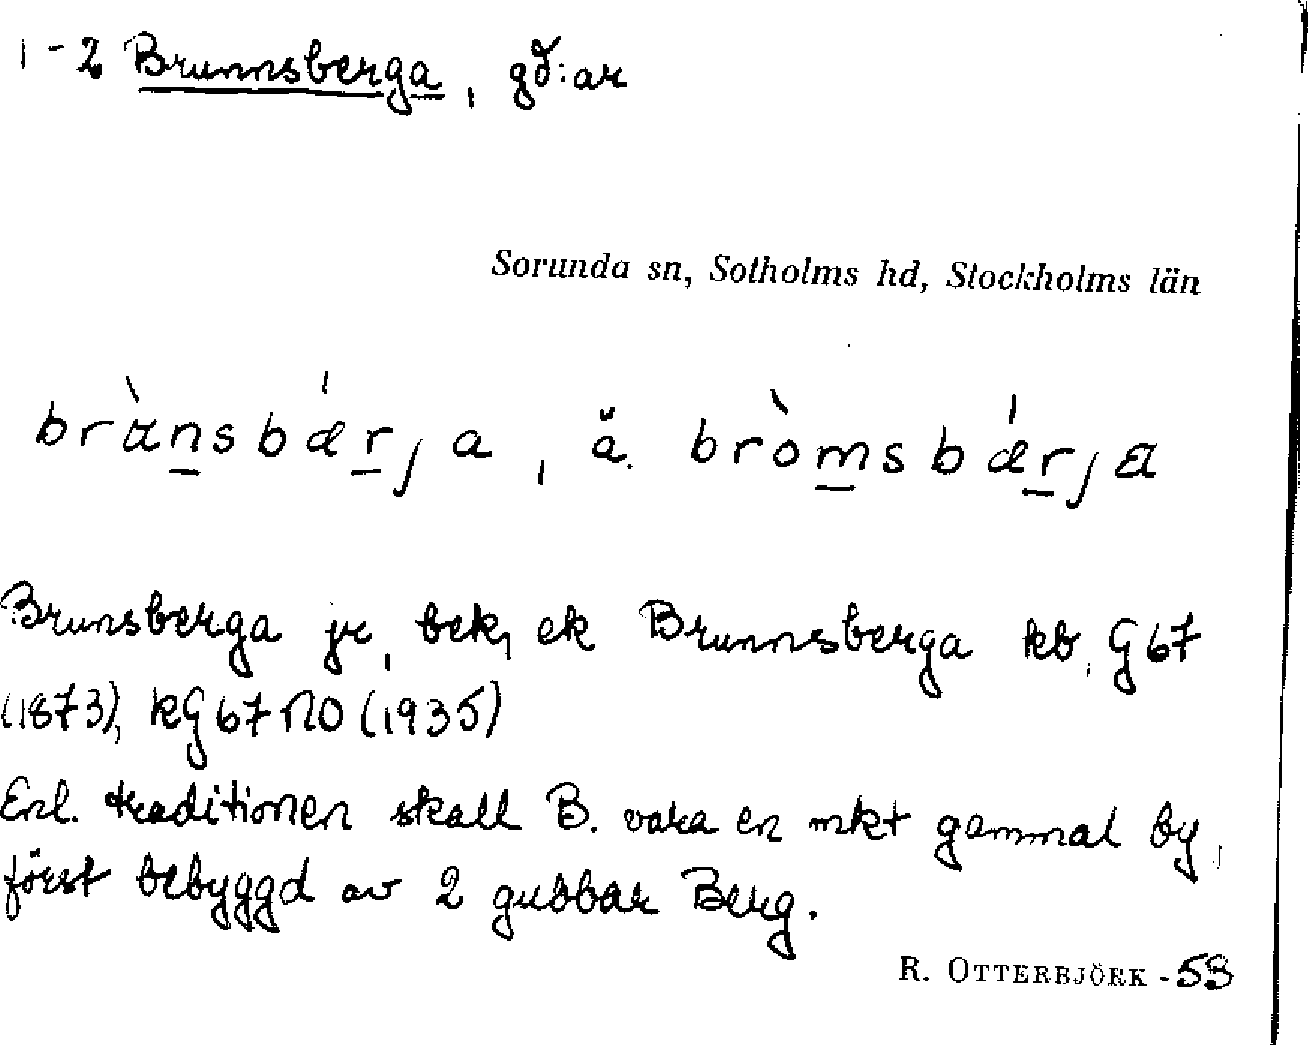 1-2 Brunnsberga, gd:ar
Sorunda sn, Sotholms hd, Stockholms län
brànsbǽrja, ä. bròmsbǽrja
Brunsberga je, bek, ek Brunnsberga kb, G67
(1873), kG 67 NO (1935)
Enl. traditionen skall B. vara en mkt gammal by,
först bebyggd av 2 gubbar Berg.
R. OTTERBJÖRK -53